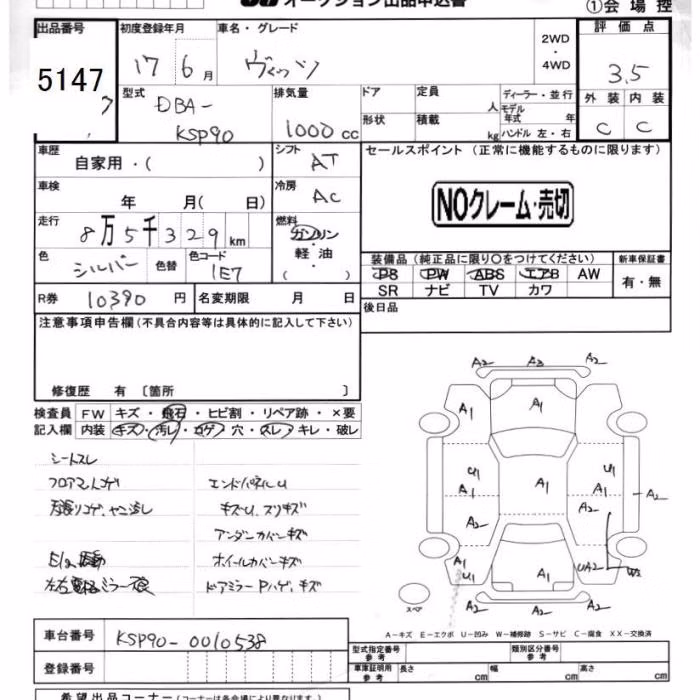 オークション出品申込書
①会場控
出品番号 初度登録年月 車名・グレード 2WD ・ 4WD 評価点
5147 17年 6月 ヴィッツ 3.5
型式 排気量 ドア 定員 人 ディーラー・並行 外装 内装
DBA-
KSP90 1000cc 形状 積載 kg モデル年式 年 ハンドル 左・右 C C
車歴 シフト セールスポイント (正常に機能するものに限ります)
自家用・( ) AT
車検 冷房
年 月( 日) AC
NOクレーム・売切
走行 燃料
8万5千329km ガソリン・軽油・( )
色 色替 色コード
シルバー 1E7
装備品 (純正品に限り○をつけてください) 新車保証書
PS PW ABS エアB AW 有・無
SR ナビ TV カワ
R券 10390円 名変期限 月 日
後日品
注意事項申告欄(不具合内容等は具体的に記入して下さい)
修復歴 有 〔箇所 〕
検査員 FW キズ・飛石・ヒビ割・リペア跡・×要
記入欄 内装 キズ・汚レ・コゲ・穴・スレ・キレ・破レ
シートスレ
フロアマットコゲ エンドパネルU
天張リコゲ、ヤニ汚レ キズU、スリキズ
アンダーカバーキズ
ホイールカバーキズ
ドアミラーPハゲ、キズ
A2 A3 A2
A1 A1
U1 A1 A1 U1 A1
A2 A2 A2
A1 U1 A1 UA2 W2
A2 A2 A2
スペア
A−キズ E−エクボ U−凹み W−補修跡 S−サビ C−腐食 XX−交換済
車台番号 KSP90-0010538
登録番号
型式指定番号 参考 類別区分番号 参考
車庫証明用 参考 長さ cm 幅 cm 高さ cm
希望出品コーナー(コーナーは各会場により異なります。)